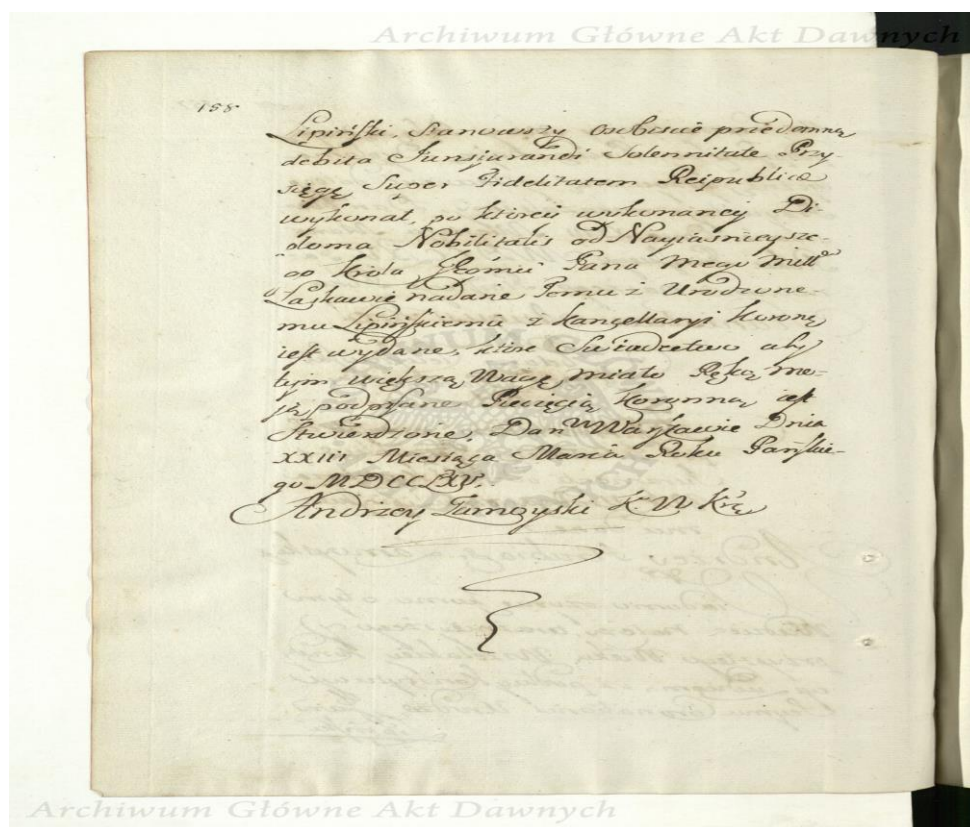 Archiwum Główne Akt Dawnych
158
Lipiński, Stanąwszy osobiscie przedemną
debita Jurisjurandi Solennitate Przy-
sięgę Super Fidelitatem Reipublicæ
wykonał, po ktorey wykonaney Di-
ploma Nobilitatis od Nayiasnieysze-
go Krola Jegomci Pana Mego Miłłº
Łaskawie nadane Temuż Urodzone-
mu Lipińskiemu z Kancellaryi Koronney
iest wydane, ktore Swiadectwo aby
tym większą Wagę miało Ręką mo-
ią podpisane Pieczęcią Koronną iest
Stwierdzone, Dan w Warszawie Dnia
XXIII Miesiąca Marca Roku Pańskie-
go MDCCLXV.
Andrzey Zamoyski K W Kor
Archiwum Główne Akt Dawnych